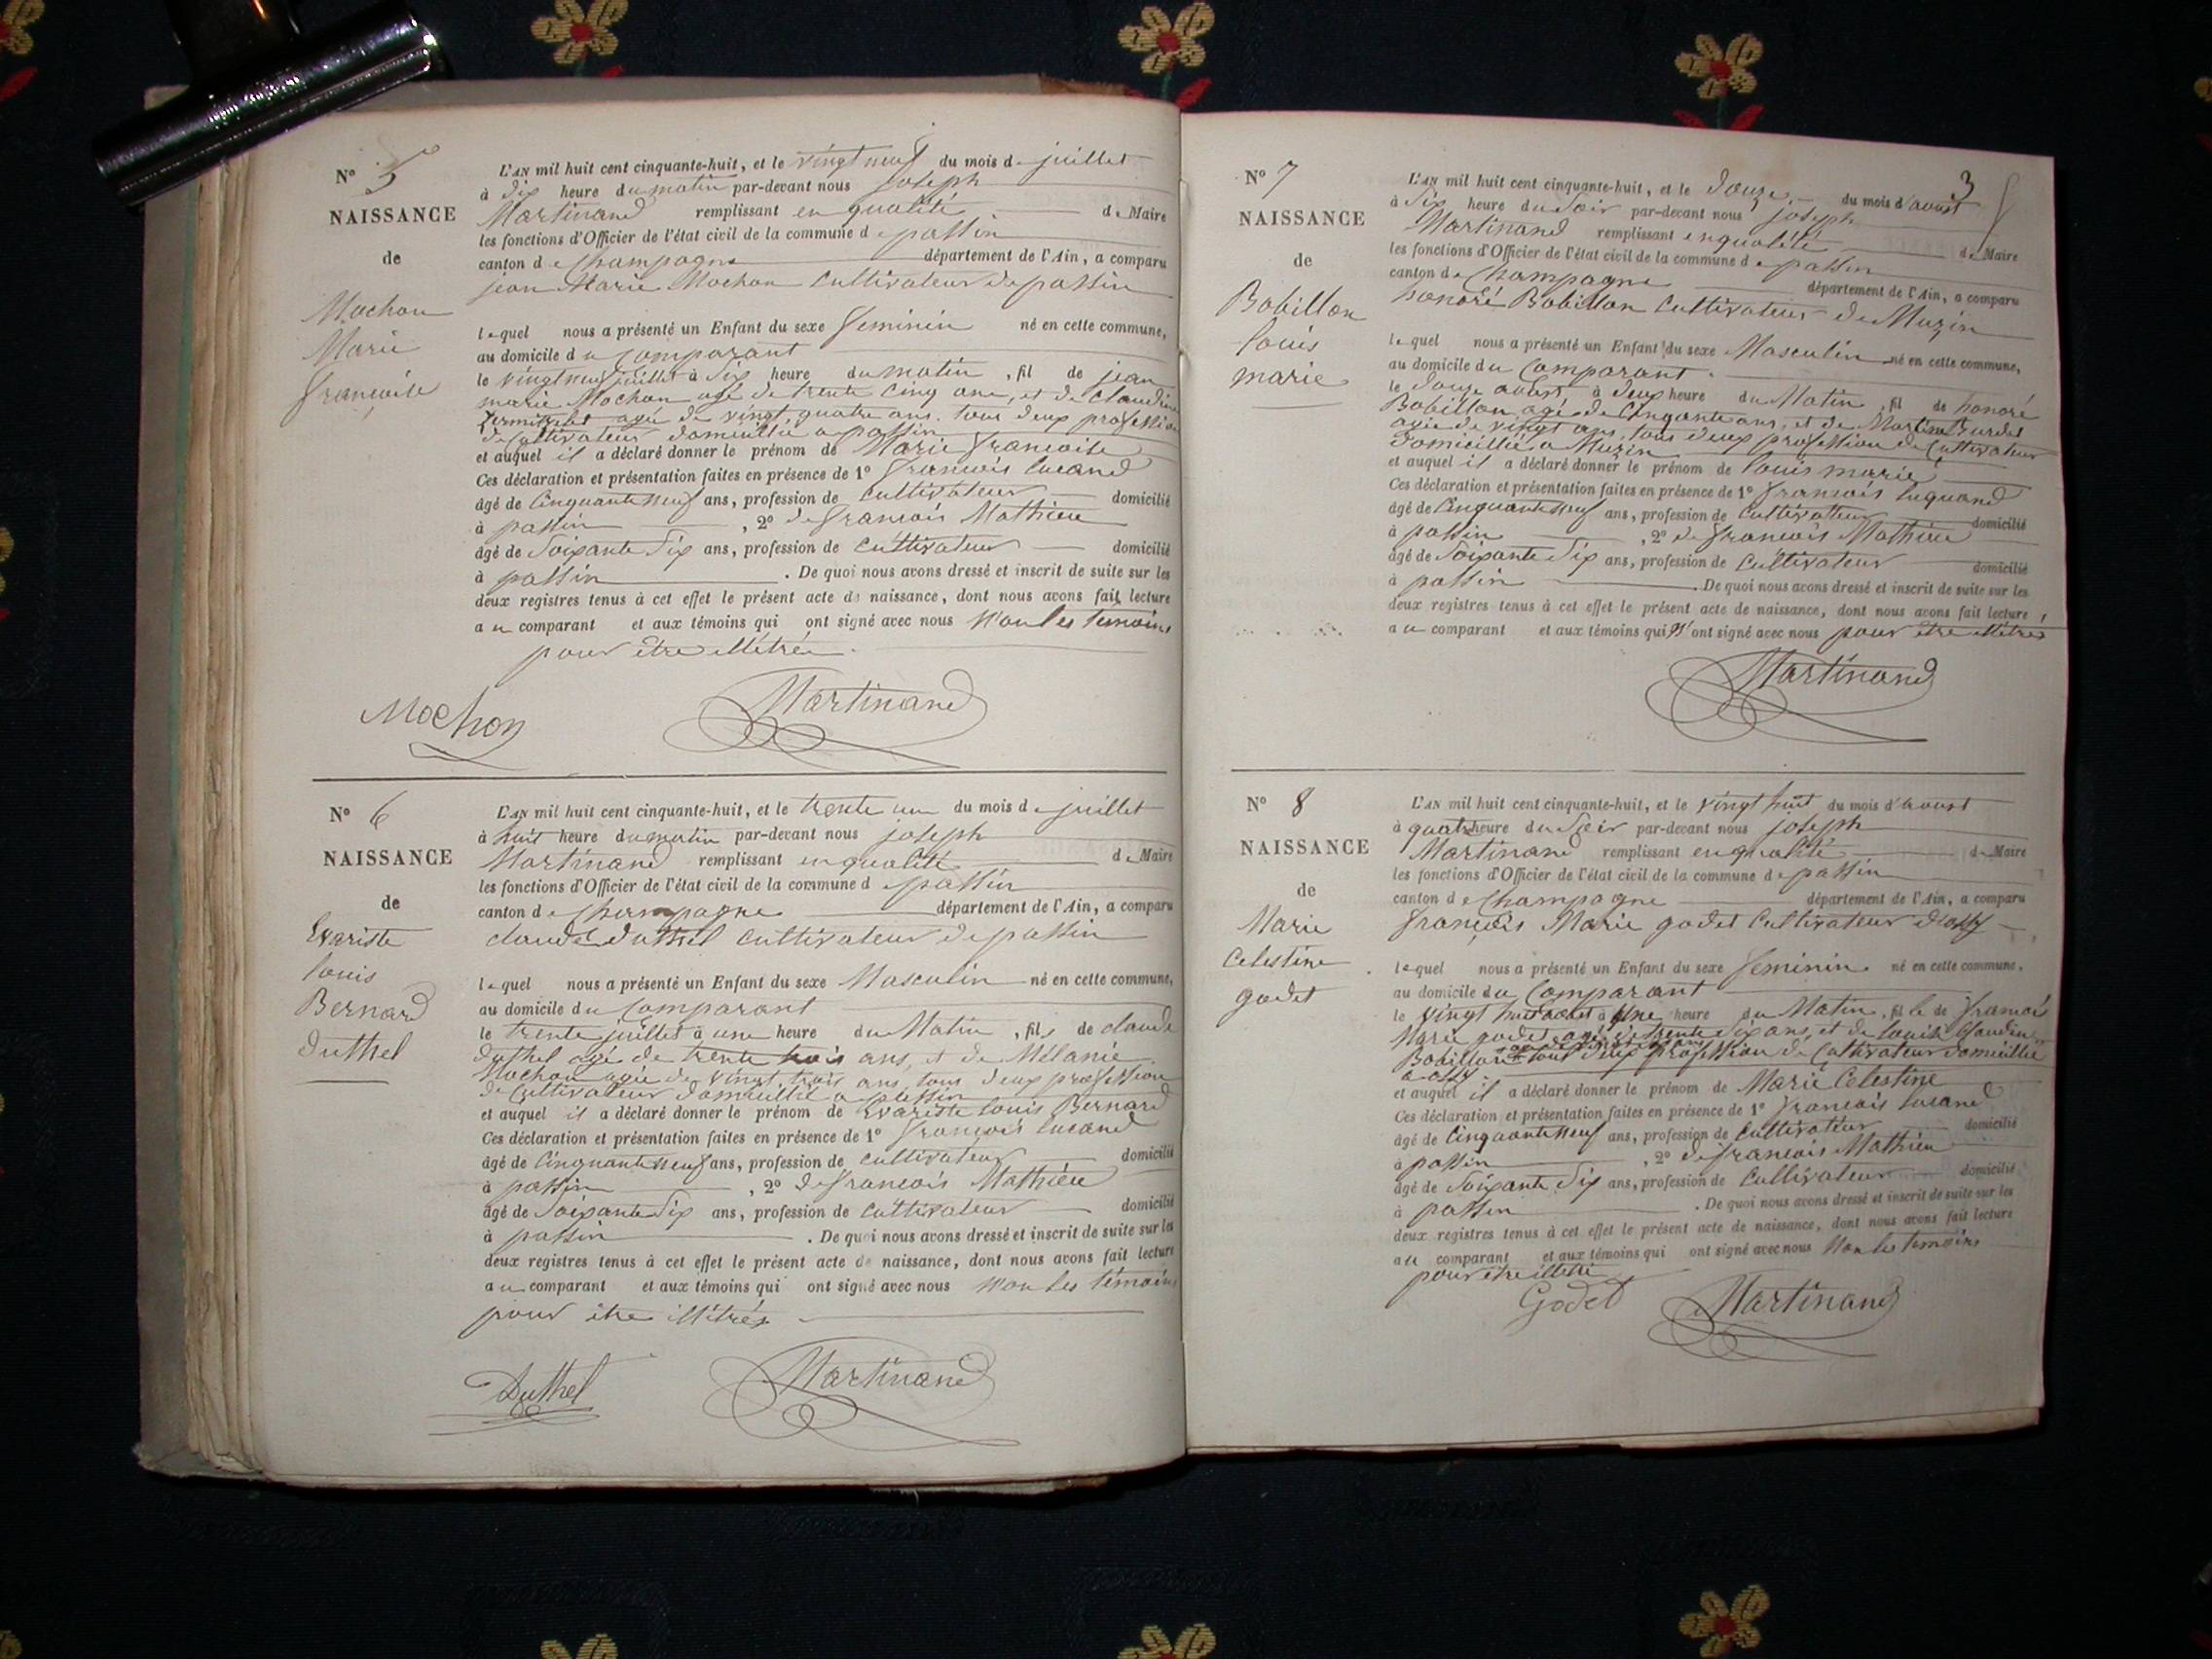 N° 5
NAISSANCE
de
Mochon
Marie
françoise
L'AN mil huit cent cinquante-huit, et le vingt neuf du mois de juillet
à dix heure du matin par-devant nous joseph
Martinand remplissant en qualité de Maire
les fonctions d'Officier de l'état civil de la commune de passin
canton de Champagne département de l'Ain, a comparu
jean Marie Mochon Cultivateur de passin
lequel nous a présenté un Enfant du sexe feminin né en cette commune,
au domicile du Comparant
le vingt neuf juillet à six heure du matin, fil de jean
marie Mochon agé de trente cinq ans, et de claudine
agée de vingt quatre ans. tous deux profession
de Cultivateur domicillié a passin
et auquel il a déclaré donner le prénom de Marie françoise
Ces déclaration et présentation faites en présence de 1° francois lucand
âgé de Cinquante neuf ans, profession de Cultivateur domicilié
à passin, 2° de francois Mathieu
âgé de Soixante Six ans, profession de Cultivateur domicilié
à passin. De quoi nous avons dressé et inscrit de suite sur les
deux registres tenus à cet effet le présent acte de naissance, dont nous avons fait lecture
au comparant et aux témoins qui ont signé avec nous Non les temoins
pour être illétrés
Mochon Martinand
N° 6
NAISSANCE
de
Evariste
louis
Bernard
duthel
L'AN mil huit cent cinquante-huit, et le trente un du mois de juillet
à huit heure du matin par-devant nous joseph
Martinand remplissant en qualité de Maire
les fonctions d'Officier de l'état civil de la commune de passin
canton de Champagne département de l'Ain, a comparu
claude duthel Cultivateur de passin
lequel nous a présenté un Enfant du sexe Masculin né en cette commune,
au domicile du Comparant
le trente juillet à une heure du Matin, fils de claude
duthel agé de trente trois ans, et de Mélanie
Mochon agée de vingt trois ans, tous deux profession
de Cultivateur domicillié a passin
et auquel il a déclaré donner le prénom de Evariste louis Bernard
Ces déclaration et présentation faites en présence de 1° francois lucand
âgé de Cinquante neuf ans, profession de Cultivateur domicilié
à passin, 2° de francois Mathieu
âgé de Soixante Six ans, profession de Cultivateur domicilié
à passin. De quoi nous avons dressé et inscrit de suite sur les
deux registres tenus à cet effet le présent acte de naissance, dont nous avons fait lecture
au comparant et aux témoins qui ont signé avec nous Non les témoins
pour être illétrés
Duthel Martinand
3
N° 7
NAISSANCE
de
Bobillon
louis
marie
L'AN mil huit cent cinquante-huit, et le douze du mois d'aoust
à Six heure du Soir par-devant nous joseph
Martinand remplissant en qualité de Maire
les fonctions d'Officier de l'état civil de la commune de passin
canton de Champagne département de l'Ain, a comparu
honoré Bobillon Cultivateur de Muzin
lequel nous a présenté un Enfant du sexe Masculin né en cette commune,
au domicile du Comparant
le douze aoust, à deux heure du Matin, fil de honoré
Bobillon, agé de Cinquante ans, et de Martine Burdet
agée de vingt ans, tous deux profession de Cultivateur
domicillié a Muzin
et auquel il a déclaré donner le prénom de louis marie
Ces déclaration et présentation faites en présence de 1° francois luquand
âgé de Cinquante neuf ans, profession de Cultivatteur domicilié
à passin, 2° de francois Mathieu
âgé de Soixante Six ans, profession de Cultivateur domicilié
à passin. De quoi nous avons dressé et inscrit de suite sur les
deux registres tenus à cet effet le présent acte de naissance, dont nous avons fait lecture,
au comparant et aux témoins qui N'ont signé avec nous pour être illétrés
Martinand
N° 8
NAISSANCE
de
Marie
Celestine
godet
L'AN mil huit cent cinquante-huit, et le vingt huit du mois d'aoust
à quatre heure du Soir par-devant nous joseph
Martinand remplissant en qualité de Maire
les fonctions d'Officier de l'état civil de la commune de passin
canton de Champagne département de l'Ain, a comparu
françois Marie godet Cultivateur d'ossy
lequel nous a présenté un Enfant du sexe feminin né en cette commune,
au domicile du Comparant
le vingt huit aoust à Une heure du Matin, fille de francois
Marie godet agé de trente six ans, et de louise Claudine
Bobillon tous deux profession de Cultivateur domicillié
a ossy
et auquel il a déclaré donner le prénom de Marie Celestine
Ces déclaration et présentation faites en présence de 1° francois lucand
âgé de Cinquante neuf ans, profession de Cultivateur domicilié
à passin, 2° de francois Mathieu
âgé de Soixante Six ans, profession de Cultivateur domicilié
à passin. De quoi nous avons dressé et inscrit de suite sur les
deux registres tenus à cet effet le présent acte de naissance, dont nous avons fait lecture
au comparant et aux témoins qui ont signé avec nous Non les temoins
pour être illétré
Godet Martinand